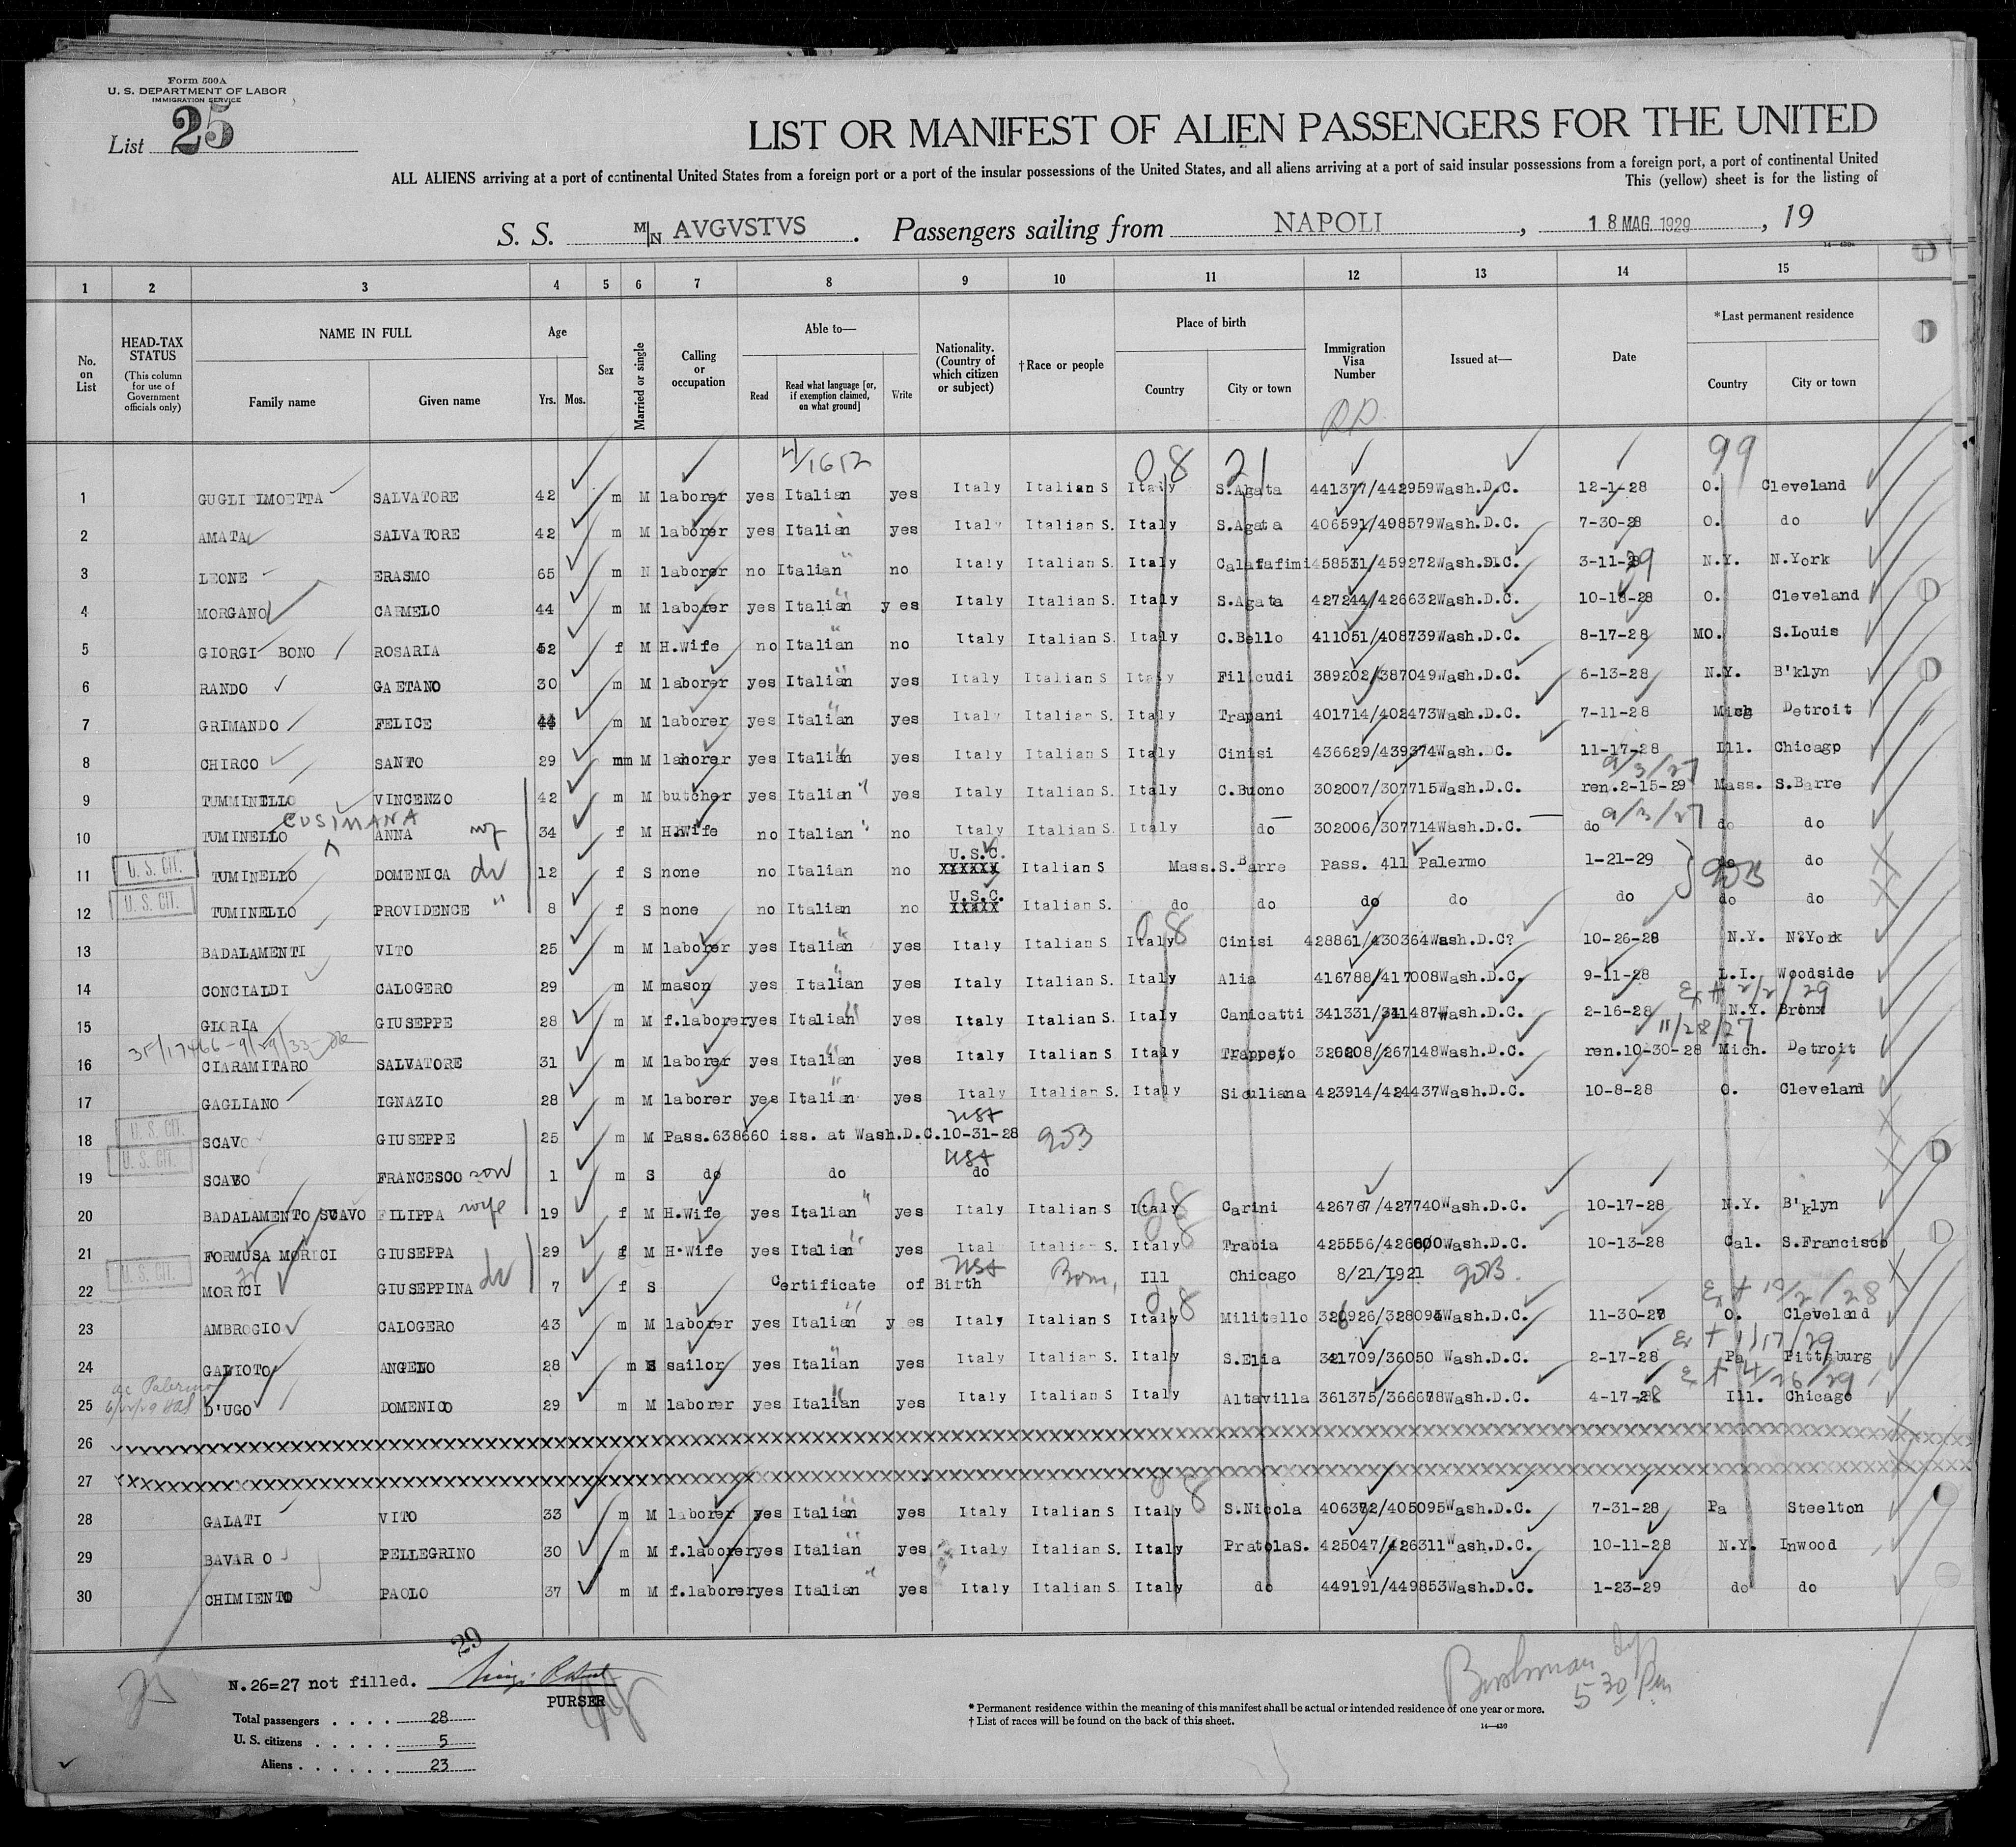 Form 500A
U. S. DEPARTMENT OF LABOR
IMMIGRATION SERVICE
List 25
LIST OR MANIFEST OF ALIEN PASSENGERS FOR THE UNITED
ALL ALIENS arriving at a port of continental United States from a foreign port or a port of the insular possessions of the United States, and all aliens arriving at a port of said insular possessions from a foreign port, a port of continental United
This (yellow) sheet is for the listing of
S. S. M/N AVGVSTVS. Passengers sailing from NAPOLI, 18 MAG. 1929, 19
1 2 3 4 5 6 7 8 9 10 11 12 13 14 15
No. on List
HEAD-TAX STATUS (This column for use of Government officials only)
NAME IN FULL Family name Given name
Age Yrs. Mos.
Sex
Married or single
Calling or occupation
Able to— Read Read what language [or, if exemption claimed, on what ground] Write
Nationality. (Country of which citizen or subject)
†Race or people
Place of birth Country City or town
Immigration Visa Number
Issued at—
Date
*Last permanent residence Country City or town
08 21 99
1 SALVATORE 42 m M laborer yes Italian yes Italy Italian S Italy S.Agata 441377/442959 Wash.D.C. 12-1-28 O. Cleveland
2 AMATA SALVATORE 42 m M laborer yes Italian yes Italy Italian S. Italy S.Agata 406591/408579 Wash.D.C. 7-30-28 O. do
3 LEONE ERASMO 65 m laborer no Italian no Italy Italian S. Italy Calatafimi Wash.D.C. 3-11-29 N.Y. N.York
4 MORGANO CARMELO 44 m M laborer yes Italian y es Italy Italian S. Italy S.Agata 427244/426632 Wash.D.C. 10-18-28 O. Cleveland
5 GIORGI BONO ROSARIA 52 f M H.Wife no Italian no Italy Italian S. Italy C.Bello 411051/408739 Wash.D.C. 8-17-28 MO. S.Louis
6 RANDO GAETANO 30 m M laborer yes Italian yes Italy Italian S Italy Filicudi 389202/387049 Wash.D.C. 6-13-28 N.Y. B'klyn
7 GRIMANDO FELICE m M laborer yes Italian yes Italy Italian S. Italy Trapani 401714/402473 Wash.D.C. 7-11-28 Mich Detroit
8 CHIRCO SANTO 29 mm M laborer yes Italian yes Italy Italian S Italy Cinisi 436629/439374 Wash. DC. 11-17-28 Ill. Chicago
9/3/27
9 TUMMINELLO VINCENZO 42 m M butcher yes Italian yes Italy Italian S. Italy C.Buono 302007/307715 Wash.D.C. ren.2-15-29 Mass. S.Barre
CUSIMANA 9/3/27
10 TUMINELLO ANNA 34 f M H.Wife no Italian no Italy Italian S. Italy do 302006/307714 Wash.D.C. do do do
U. S. CIT. U.S.C.
11 TUMINELLO DOMENICA 12 f S none no Italian no XXXXXX Italian S Mass. S.Barre Pass. 411 Palermo 1-21-29 do do
U. S. CIT. U.S.C.
12 TUMINELLO PROVIDENCE " 8 f S none no Italian no XXXXX Italian S. do do do do do do do
08
13 BADALAMENTI VITO 25 m M laborer yes Italian yes Italy Italian S Italy Cinisi 428861/430364 Wash.D.C? 10-26-28 N.Y. N?York
14 CONCIALDI CALOGERO 29 m M mason yes Italian yes Italy Italian S. Italy Alia 416788/417008 Wash.D.C. 9-11-28 L.I. Woodside
Ext 2/2/29
15 GLORIA GIUSEPPE 28 m M f.laborer yes Italian yes Italy Italian S. Italy Canicatti Wash.D.C. 2-16-28 N.Y. Bronx
11/28/27
16 CIARAMITARO SALVATORE 31 m M laborer yes Italian yes Italy Italian S Italy Trappeto Wash.D.C. ren.10-30-28 Mich. Detroit
17 GAGLIANO IGNAZIO 28 m M laborer yes Italian yes Italy Italian S. Italy Siculiana 423914/424437 Wash.D.C. 10-8-28 O. Cleveland
U. S. CIT. USA
18 SCAVO GIUSEPPE 25 m M Pass.638660 iss. at Wash.D.C.10-31-28
U. S. CIT. USA
19 FRANCESCO son 1 m S do do do
20 BADALAMENTO SCAVO FILIPPA wife 19 f M H.Wife yes Italian yes Italy Italian S Italy Carini 426767/427740 Wash.D.C. 10-17-28 N.Y. B'klyn
21 FORMUSA MORICI GIUSEPPA 29 f M H.Wife yes Italian Ital Italian S. Italy Trabia Wash.D.C. 10-13-28 Cal. S.Francisco
U. S. CIT. USA
22 MORICI GIUSEPPINA 7 f S Certificate of Birth Born, Ill Chicago 8/21/1921
Ext 12/2/28
23 AMBROGIO CALOGERO 43 m M laborer yes Italian y es Italy Italian S Italy Militello Wash.D.C. O. Cleveland
Ext 1/17/29
24 GALIOTO ANGELO 28 m sailor yes Italian yes Italy Italian S. Italy S.Elia Wash.D.C. 2-17-28 Pa Pittsburg
Ext 4/26/29
25 D'UGO DOMENICO 29 m M laborer yes Italian yes Italy Italian S Italy Altavilla Wash.D.C. 4-17-28 Ill. Chicago
26
27
28 GALATI VITO 33 m M laborer yes Italian yes Italy Italian S Italy S.Nicola Wash.D.C. 7-31-28 Pa Steelton
29 BAVAR O PELLEGRINO 30 m M f.laborer yes Italian yes Italy Italian S. Italy PratolaS. 425047/426311 Wash.D.C. 10-11-28 N.Y. Inwood
30 CHIMIENTO PAOLO 37 m M f.laborer yes Italian yes Italy Italian S Italy do 449191/449853 Wash.D.C. 1-23-29 do do
29
N.26=27 not filled.
PURSER
Total passengers . . . . 28
U. S. citizens . . . . . 5
Aliens . . . . . . 23
5 30 Pm
* Permanent residence within the meaning of this manifest shall be actual or intended residence of one year or more.
† List of races will be found on the back of this sheet.
14—430